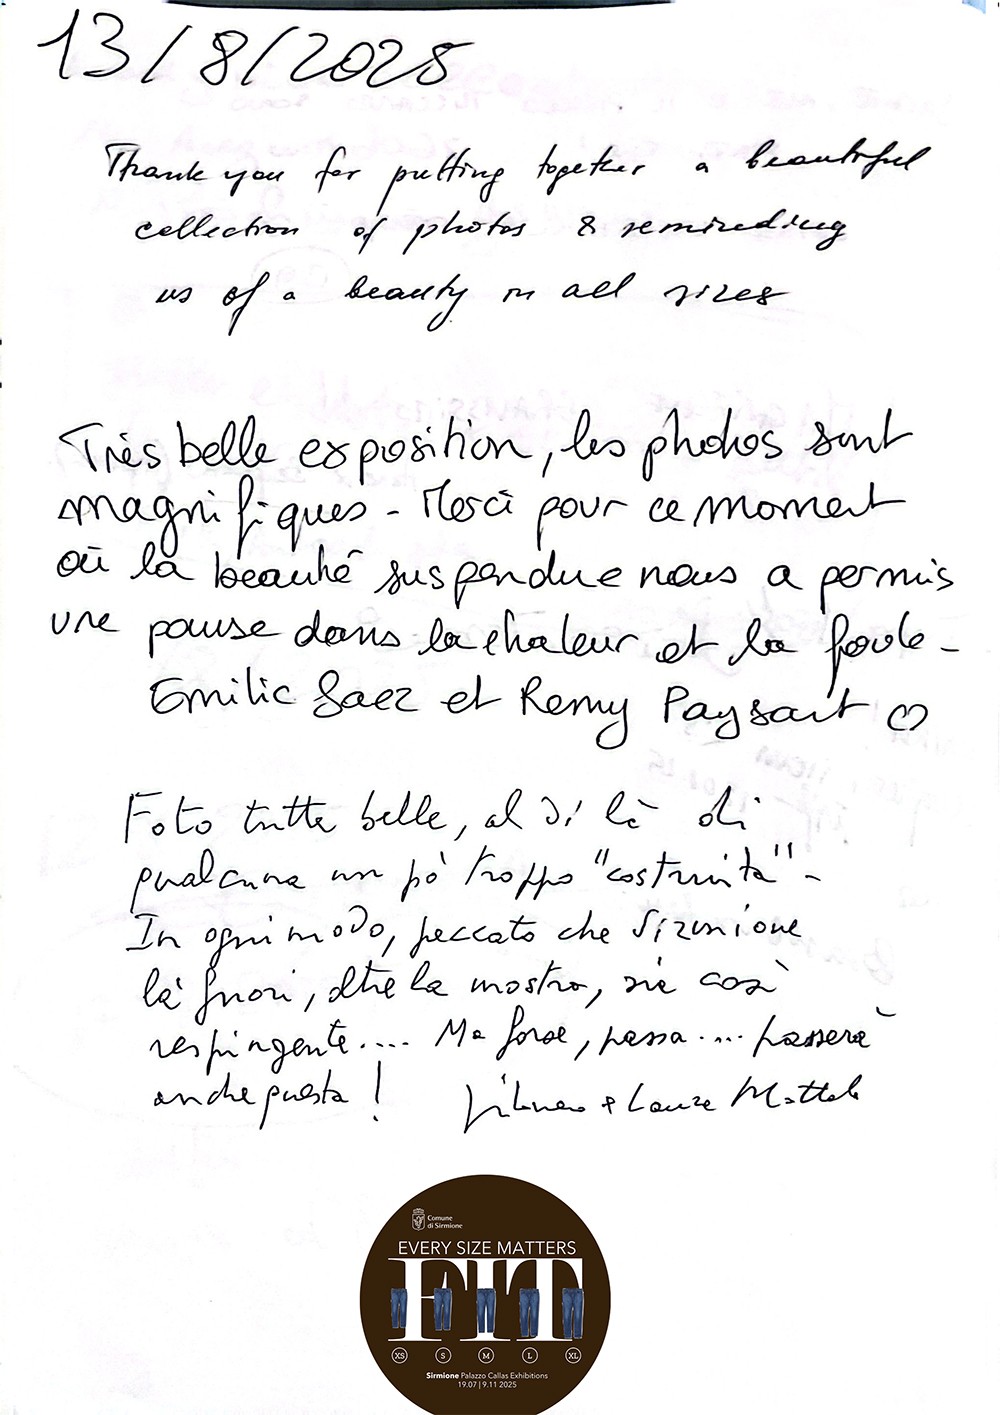 13/8/2025
Thank you for putting together a beautiful
collection of photos & reminding
us of a beauty in all sizes
Très belle exposition, les photos sont
magnifiques - Merci pour ce moment
où la beauté suspendue nous a permis
une pause dans la chaleur et la foule -
Emilie Saez et Remy Paysart ♡
Foto tutte belle, al di là di
qualcuna un pò troppo "costruita" -
In ogni modo, peccato che Sirmione
là fuori, oltre la mostra, sia così
respingente.... Ma forse, passa.... passerà
anche questa!
+ Laura
Comune
di Sirmione
EVERY SIZE MATTERS
FIT
XS S M L XL
Sirmione Palazzo Callas Exhibitions
19.07 | 9.11 2025